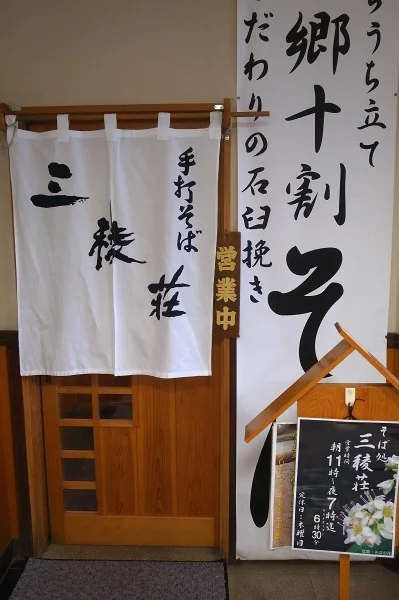 手打そば
三稜荘
営業中
うち立て
郷十割そ
だわりの石臼挽き
そば処
三稜荘
営業時間
朝11時〜夜7時迄
6時30分
定休日:木曜日